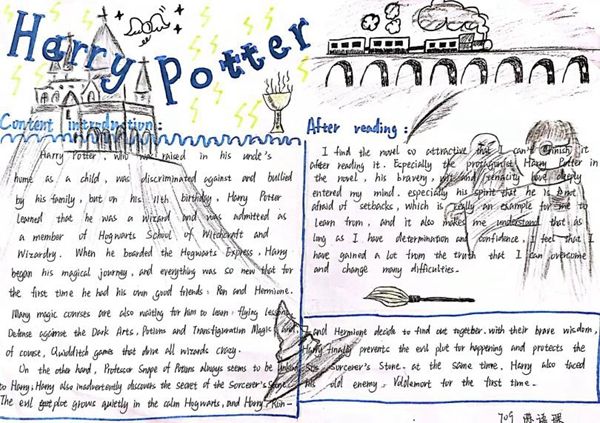 Harry Potter
Content introduction:
Harry Potter, who was raised in his uncle's
home as a child, was discriminated against and bullied
by his family, but on his 11th birthday, Harry Potter
learned that he was a wizard and was admitted as
a member of Hogwarts School of Witchcraft and
Wizardry. When he boarded the Hogwarts Express, Harry
began his magical journey, and everything was so new that for
the first time he had his own good friends: Ron and Hermione.
Many magic courses are also waiting for him to learn: flying lessons,
Defense against the Dark Arts, Potions and Transfiguration Magic and,
of course, Quidditch games that drive all wizards crazy.
On the other hand, Professor Snape of Potions always seems to be
to Harry; Harry also inadvertently discovers the secret of the Sorcerer's Stone.
The evil plot grows quietly in the calm Hogwarts, and Harry, Ron
and Hermione decide to find out together. with their brave wisdom,
Harry finally prevents the evil plot for happening and protects the
Sorcerer's Stone. at the same time, Harry also faced
his old enemy, Voldemort for the first time.
After reading:
I find the novel so attractive that I can't finish it
after reading it. Especially the protagonist Harry Potter in
the novel, his bravery, wit and tenacity have deeply
entered my mind. especially his spirit that he is not
afraid of setbacks, which is really an example for me to
learn from, and it also makes me understand that as
long as I have determination and confidence, I feel that I
have gained a lot from the truth that I can overcome
and change many difficulties.
709